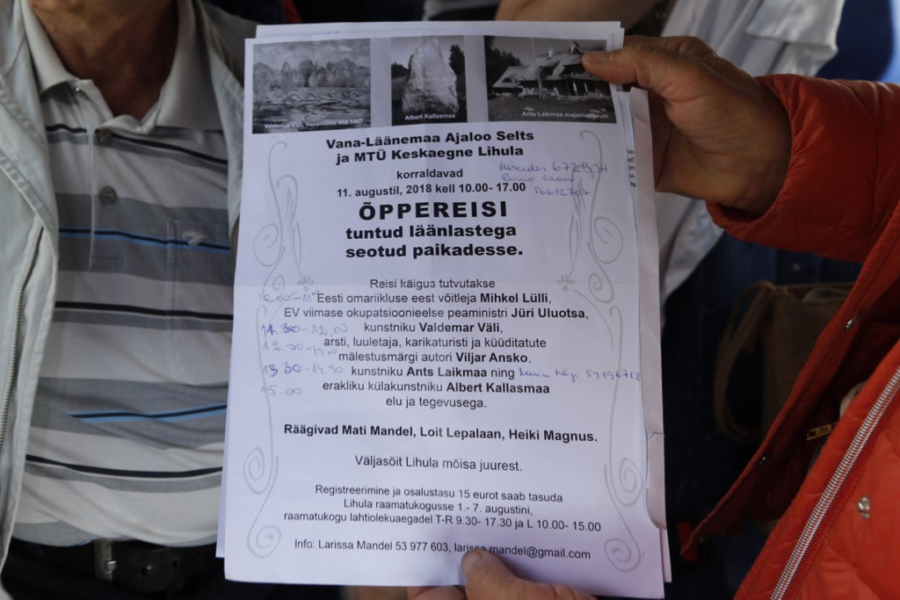 Albert Kallasmaa
Ants Laikmaa majamuuseum
Vana-Läänemaa Ajaloo Selts
ja MTÜ Keskaegne Lihula
korraldavad
11. augustil, 2018 kell 10.00- 17.00
ÕPPEREISI
tuntud läänlastega
seotud paikadesse.
Reisi käigus tutvutakse
Eesti omariikluse eest võitleja Mihkel Lülli,
EV viimase okupatsioonieelse peaministri Jüri Uluotsa,
kunstniku Valdemar Väli,
arsti, luuletaja, karikaturisti ja küüditatute
12.30
mälestusmärgi autori Viljar Ansko,
13.30-14.30 kunstniku Ants Laikmaa ning
15.00 erakliku külakunstniku Albert Kallasmaa
elu ja tegevusega.
Räägivad Mati Mandel, Loit Lepalaan, Heiki Magnus.
Väljasõit Lihula mõisa juurest.
Registreerimine ja osalustasu 15 eurot saab tasuda
Lihula raamatukogusse 1.- 7. augustini,
raamatukogu lahtiolekuaegadel T-R 9.30- 17.30 ja L 10.00- 15.00
Info: Larissa Mandel 53 977 603, larissa.mandel@gmail.com